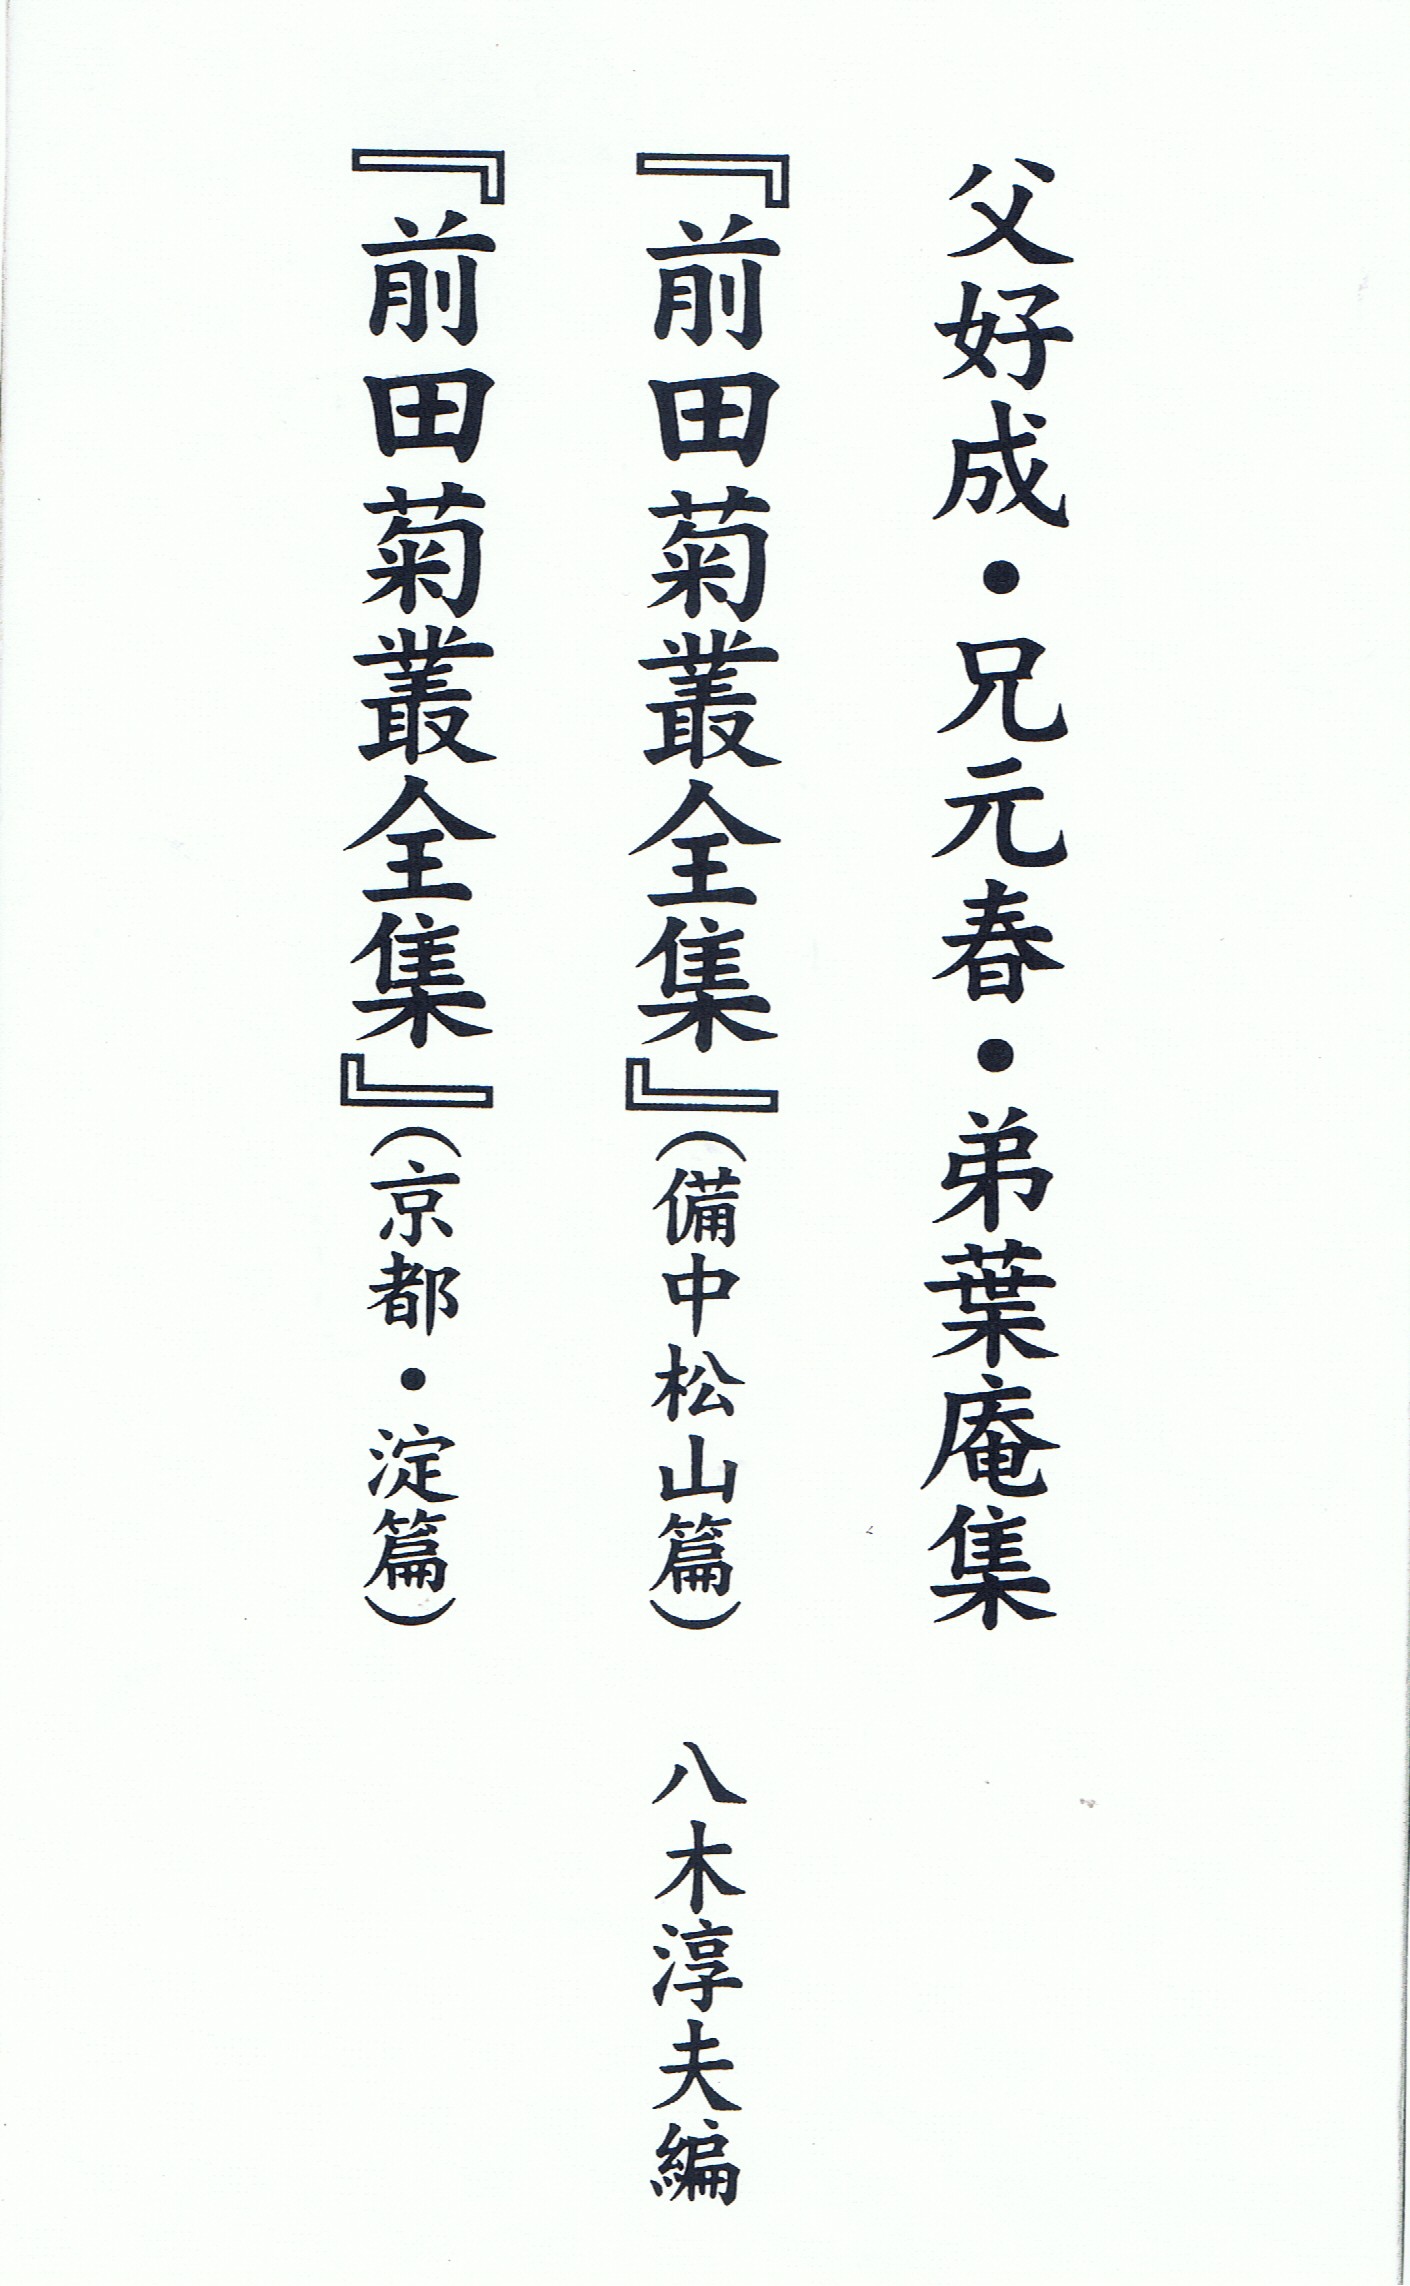 父好成・兄元春・弟葉庵集
『前田菊叢全集』(備中松山篇) 八木淳夫編
『前田菊叢全集』(京都・淀篇)